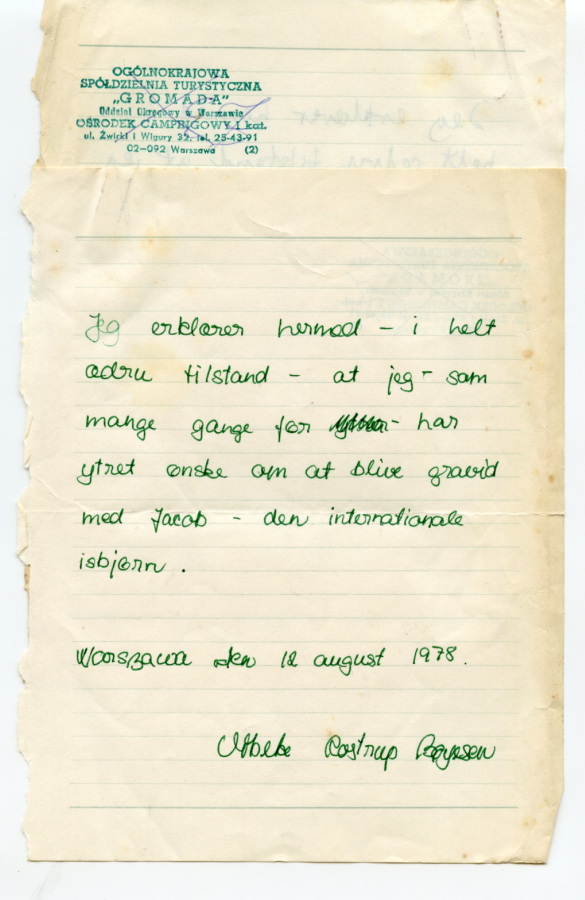 OGÓLNOKRAJOWA
SPÓŁDZIELNIA TURYSTYCZNA
„GROMADA"
Oddział Okręgowy w Warszawie
OŚRODEK CAMPINGOWY I kat.
ul. Żwirki i Wigury 32, tel. 25-43-91
02-092 Warszawa (2)
Jeg erklærer hermed – i helt
ædru tilstand – at jeg – som
mange gange før – har
ytret ønske om at blive gravid
med Jacob – den internationale
isbjørn .
Warszawa den 12 august 1978.
Vibeke Rostrup Bøyesen